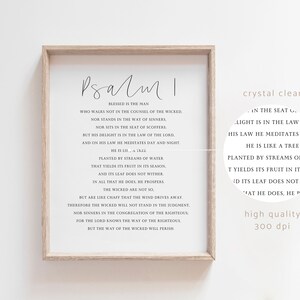 Psalm 1
BLESSED IS THE MAN
WHO WALKS NOT IN THE COUNSEL OF THE WICKED,
NOR STANDS IN THE WAY OF SINNERS,
NOR SITS IN THE SEAT OF SCOFFERS;
BUT HIS DELIGHT IS IN THE LAW OF THE LORD,
AND ON HIS LAW HE MEDITATES DAY AND NIGHT.
HE IS LIKE A TREE
PLANTED BY STREAMS OF WATER,
THAT YIELDS ITS FRUIT IN ITS SEASON,
AND ITS LEAF DOES NOT WITHER.
IN ALL THAT HE DOES, HE PROSPERS.
THE WICKED ARE NOT SO,
BUT ARE LIKE CHAFF THAT THE WIND DRIVES AWAY.
THEREFORE THE WICKED WILL NOT STAND IN THE JUDGMENT,
NOR SINNERS IN THE CONGREGATION OF THE RIGHTEOUS;
FOR THE LORD KNOWS THE WAY OF THE RIGHTEOUS,
BUT THE WAY OF THE WICKED WILL PERISH.
crystal clear
IN THE SEAT OF
LIGHT IS IN THE LAW
HIS LAW HE MEDITATES
HE IS LIKE A TREE
PLANTED BY STREAMS OF
YIELDS ITS FRUIT IN IT
ND ITS LEAF DOES NOT
HAT HE DOES, HE P
high quality
300 dpi